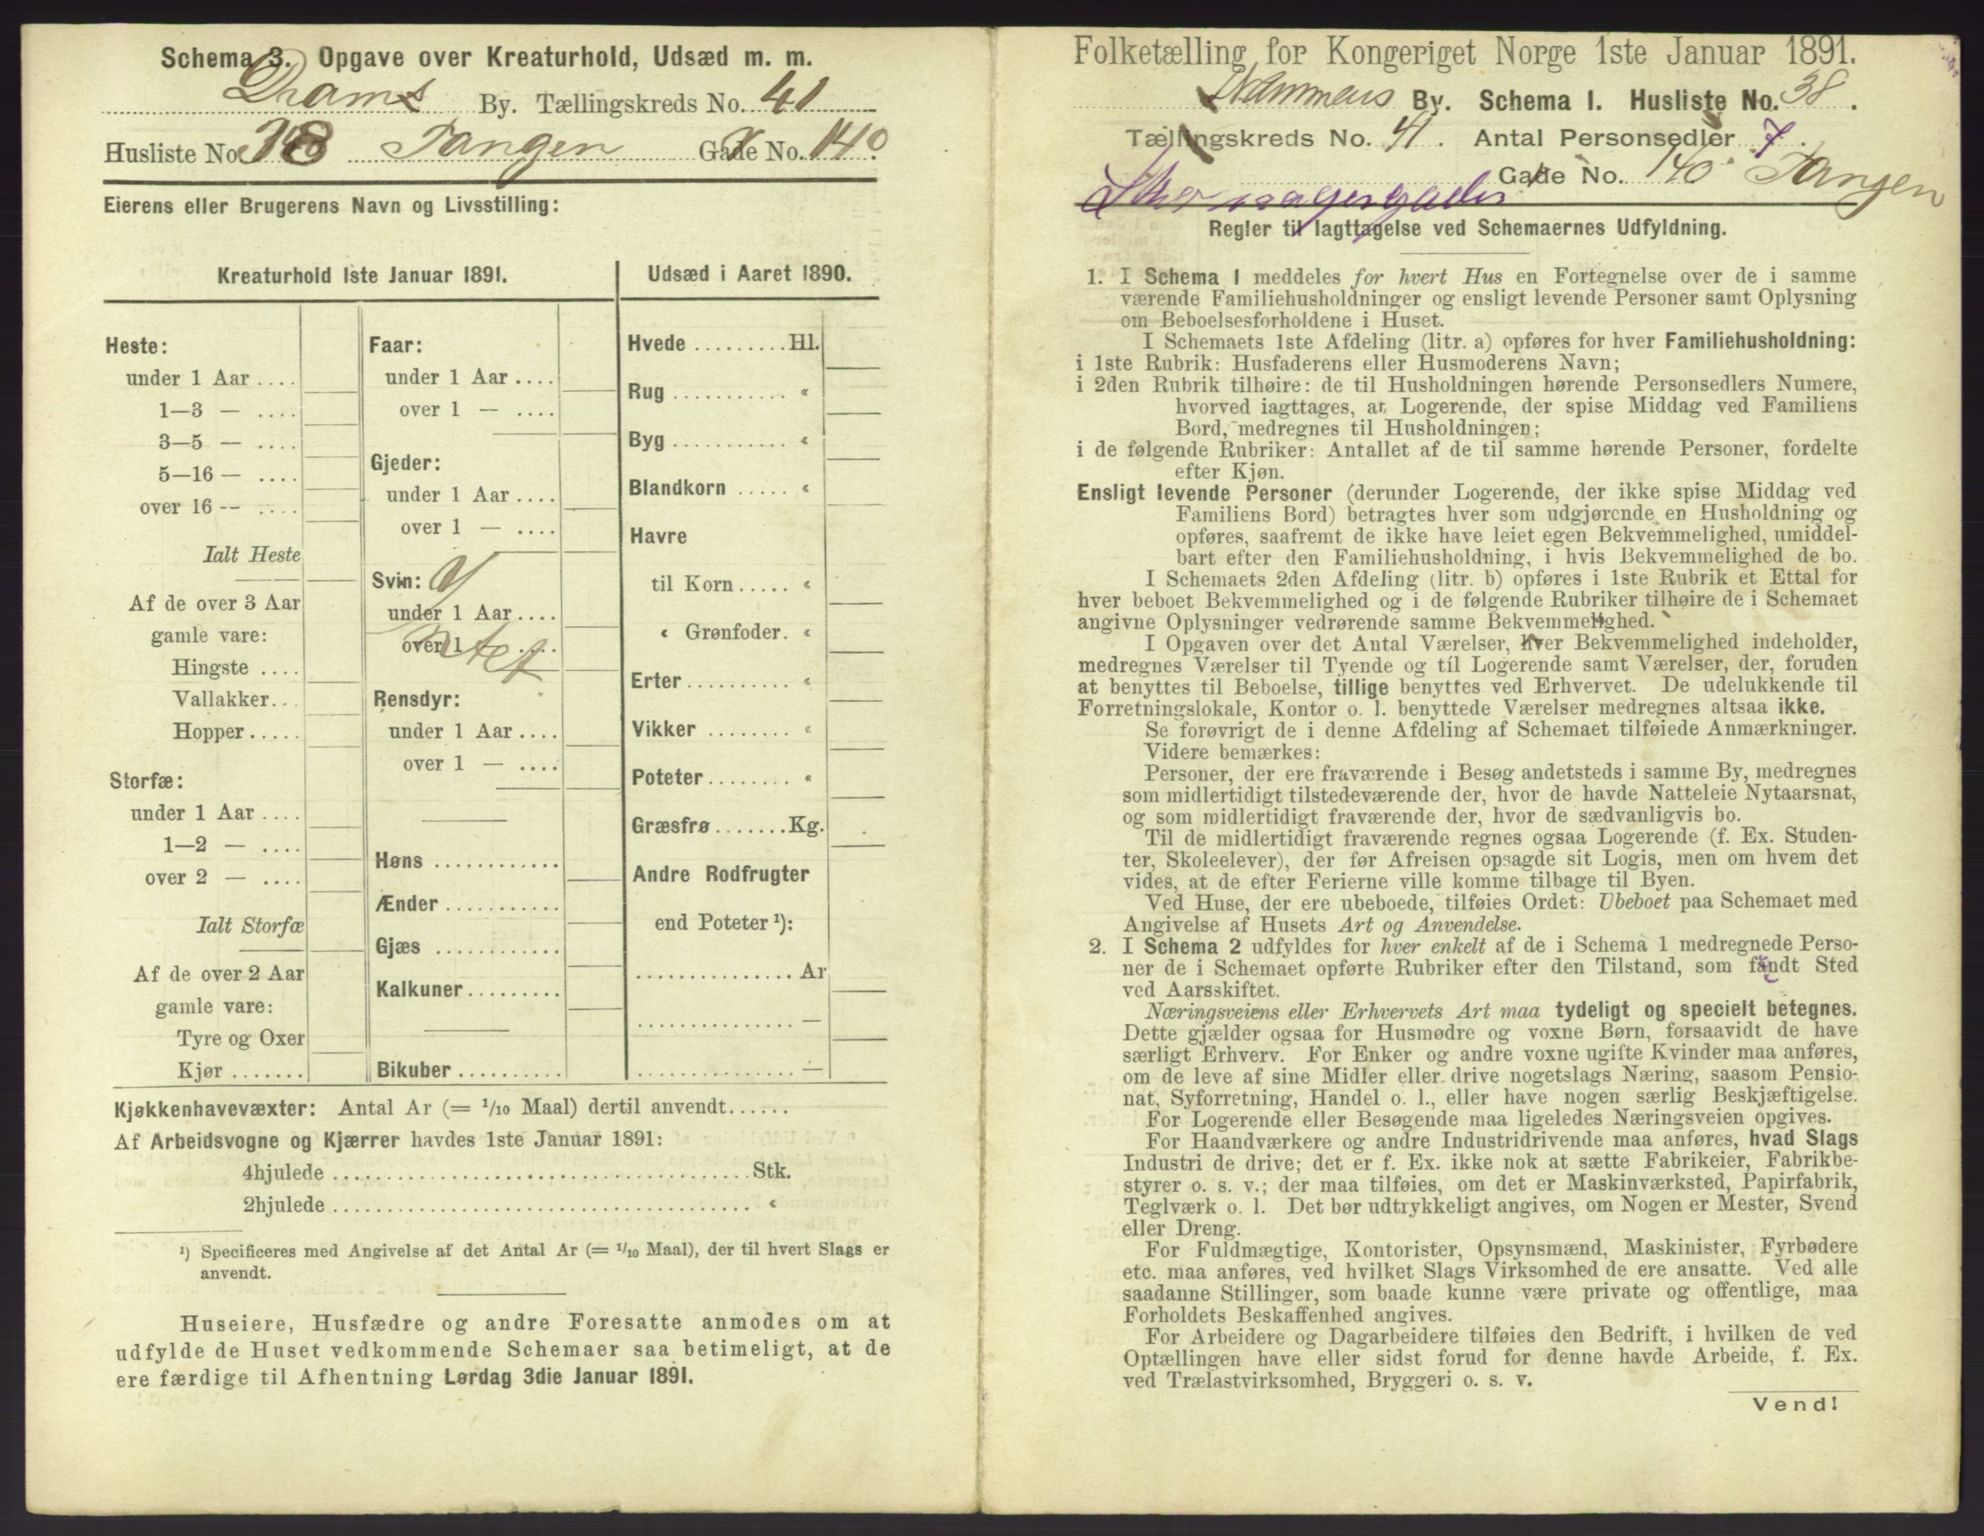 Schema 3. Opgave over Kreaturhold, Udsæd m. m.
Drams By. Tællingskreds No. 41
Husliste No. 38 Tangen Gade No. 140
Eierens eller Brugerens Navn og Livsstilling:
Kreaturhold 1ste Januar 1891.
Heste:
under 1 Aar ....
1—3 — ....
3—5 — ....
5—16 — ....
over 16 -- ....
Ialt Heste
Af de over 3 Aar
gamle vare:
Hingste ....
Vallakker...
Hopper .....
Storfæ:
under 1 Aar ....
1—2 — ....
over 2 — ....
Ialt Storfæ
Af de over 2 Aar
gamle vare:
Tyre og Oxer
Kjør .......
Faar:
under 1 Aar ....
over 1 — ....
Gjeder:
under 1 Aar ....
over 1 — ....
Svin:
under 1 Aar ....
over 1 ....
Rensdyr:
under 1 Aar ....
over 1 — ....
Høns ............
Ænder ...........
Gjæs ............
Kalkuner.........
Bikuber ..........
Udsæd i Aaret 1890.
Hvede .........Hl.
Rug ........... «
Byg ........... «
Blandkorn ..... «
Havre
til Korn ..... «
« Grønfoder. «
Erter .......... «
Vikker ........ «
Poteter ........ «
Græsfrø .......Kg.
Andre Rodfrugter
end Poteter ¹):
............... Ar
............... —
............... —
Kjøkkenhavevæxter: Antal Ar (= 1/10 Maal) dertil anvendt......
Af Arbeidsvogne og Kjærrer havdes 1ste Januar 1891:
4hjulede ........................................ Stk.
2hjulede ........................................ «
¹) Specificeres med Angivelse af det Antal Ar (= 1/10 Maal), der til hvert Slags er
anvendt.
Huseiere, Husfædre og andre Foresatte anmodes om at
udfylde de Huset vedkommende Schemaer saa betimeligt, at de
ere færdige til Afhentning Lørdag 3die Januar 1891.
Folketælling for Kongeriget Norge 1ste Januar 1891.
Drammens By. Schema 1. Husliste No. 38.
Tællingskreds No. 41. Antal Personsedler 7.
Gade No. 140 Tangen
Regler til Iagttagelse ved Schemaernes Udfyldning.
1. I Schema 1 meddeles for hvert Hus en Fortegnelse over de i samme
værende Familiehusholdninger og ensligt levende Personer samt Oplysning
om Beboelsesforholdene i Huset.
I Schemaets 1ste Afdeling (litr. a) opføres for hver Familiehusholdning:
i 1ste Rubrik: Husfaderens eller Husmoderens Navn;
i 2den Rubrik tilhøire: de til Husholdningen hørende Personsedlers Numere,
hvorved iagttages, at Logerende, der spise Middag ved Familiens
Bord, medregnes til Husholdningen;
i de følgende Rubriker: Antallet af de til samme hørende Personer, fordelte
efter Kjøn.
Ensligt levende Personer (derunder Logerende, der ikke spise Middag ved
Familiens Bord) betragtes hver som udgjørende en Husholdning og
opføres, saafremt de ikke have leiet egen Bekvemmelighed, umiddel-
bart efter den Familiehusholdning, i hvis Bekvemmelighed de bo.
I Schemaets 2den Afdeling (litr. b) opføres i 1ste Rubrik et Ettal for
hver beboet Bekvemmelighed og i de følgende Rubriker tilhøire de i Schemaet
angivne Oplysninger vedrørende samme Bekvemmelighed.
I Opgaven over det Antal Værelser, hver Bekvemmelighed indeholder,
medregnes Værelser til Tyende og til Logerende samt Værelser, der, foruden
at benyttes til Beboelse, tillige benyttes ved Erhvervet. De udelukkende til
Forretningslokale, Kontor o. l. benyttede Værelser medregnes altsaa ikke.
Se forøvrigt de i denne Afdeling af Schemaet tilføiede Anmærkninger.
Videre bemærkes:
Personer, der ere fraværende i Besøg andetsteds i samme By, medregnes
som midlertidigt tilstedeværende der, hvor de havde Natteleie Nytaarsnat,
og som midlertidigt fraværende der, hvor de sædvanligvis bo.
Til de midlertidigt fraværende regnes ogsaa Logerende (f. Ex. Studen-
ter, Skoleelever), der før Afreisen opsagde sit Logis, men om hvem det
vides, at de efter Ferierne ville komme tilbage til Byen.
Ved Huse, der ere ubeboede, tilføies Ordet: Ubeboet paa Schemaet med
Angivelse af Husets Art og Anvendelse.
2. I Schema 2 udfyldes for hver enkelt af de i Schema 1 medregnede Perso-
ner de i Schemaet opførte Rubriker efter den Tilstand, som fandt Sted
ved Aarsskiftet.
Næringsveiens eller Erhvervets Art maa tydeligt og specielt betegnes.
Dette gjælder ogsaa for Husmødre og voxne Børn, forsaavidt de have
særligt Erhverv. For Enker og andre voxne ugifte Kvinder maa anføres,
om de leve af sine Midler eller drive nogetslags Næring, saasom Pensio-
nat, Syforretning, Handel o. l., eller have nogen særlig Beskjæftigelse.
For Logerende eller Besøgende maa ligeledes Næringsveien opgives.
For Haandværkere og andre Industridrivende maa anføres, hvad Slags
Industri de drive; det er f. Ex. ikke nok at sætte Fabrikeier, Fabrikbe-
styrer o. s. v.; der maa tilføies, om det er Maskinværksted, Papirfabrik,
Teglværk o. l. Det bør udtrykkeligt angives, om Nogen er Mester, Svend
eller Dreng.
For Fuldmægtige, Kontorister, Opsynsmænd, Maskinister, Fyrbødere
etc. maa anføres, ved hvilket Slags Virksomhed de ere ansatte. Ved alle
saadanne Stillinger, som baade kunne være private og offentlige, maa
Forholdets Beskaffenhed angives.
For Arbeidere og Dagarbeidere tilføies den Bedrift, i hvilken de ved
Optællingen have eller sidst forud for denne havde Arbeide, f. Ex.
ved Trælastvirksomhed, Bryggeri o. s. v.
Vend!